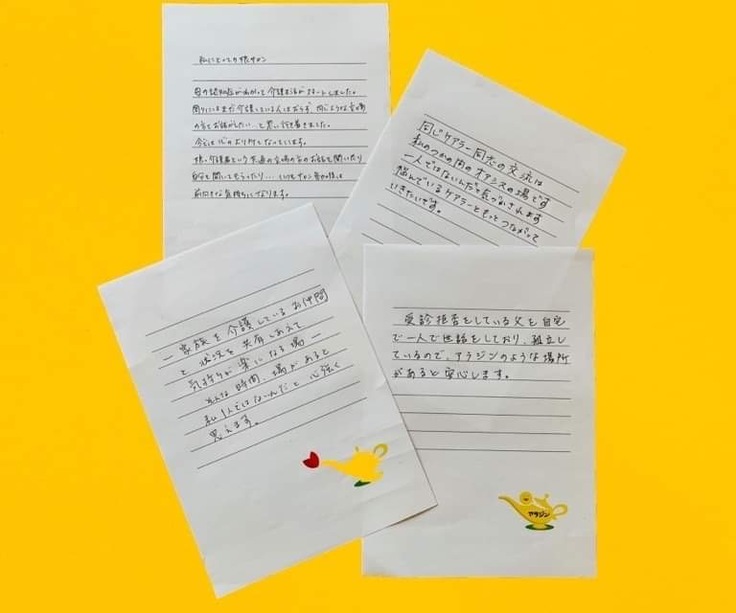 私にとっての娘サロン
母の認知症がわかって介護生活がスタートしました。
周りにはまだ介護している人はおらず、同じような立場
の方とお話がしたい…と思い行き着きました。
今では心のより所となっています。
娘・介護者という共通の立場の方のお話を聞いたり
自分も聞いてもらったり…いつもサロン参加後は
前向きな気持ちになります。
同じケアラー同志の交流は
私のつかの間のオアシスの場です
一人ではないんだと気づかされます
悩んでいるケアラーともっとつながって
いきたいです。
― 家族を介護しているお仲間
と 状況を共有しあえて
気持ちが楽になる場 ―
そんな時間、場があると
私1人ではないんだと 心強く
思えます。
受診拒否をしている父を自宅
で一人で世話をしており、孤立し
ているので、アラジンのような場所
があると安心します。
アラジン